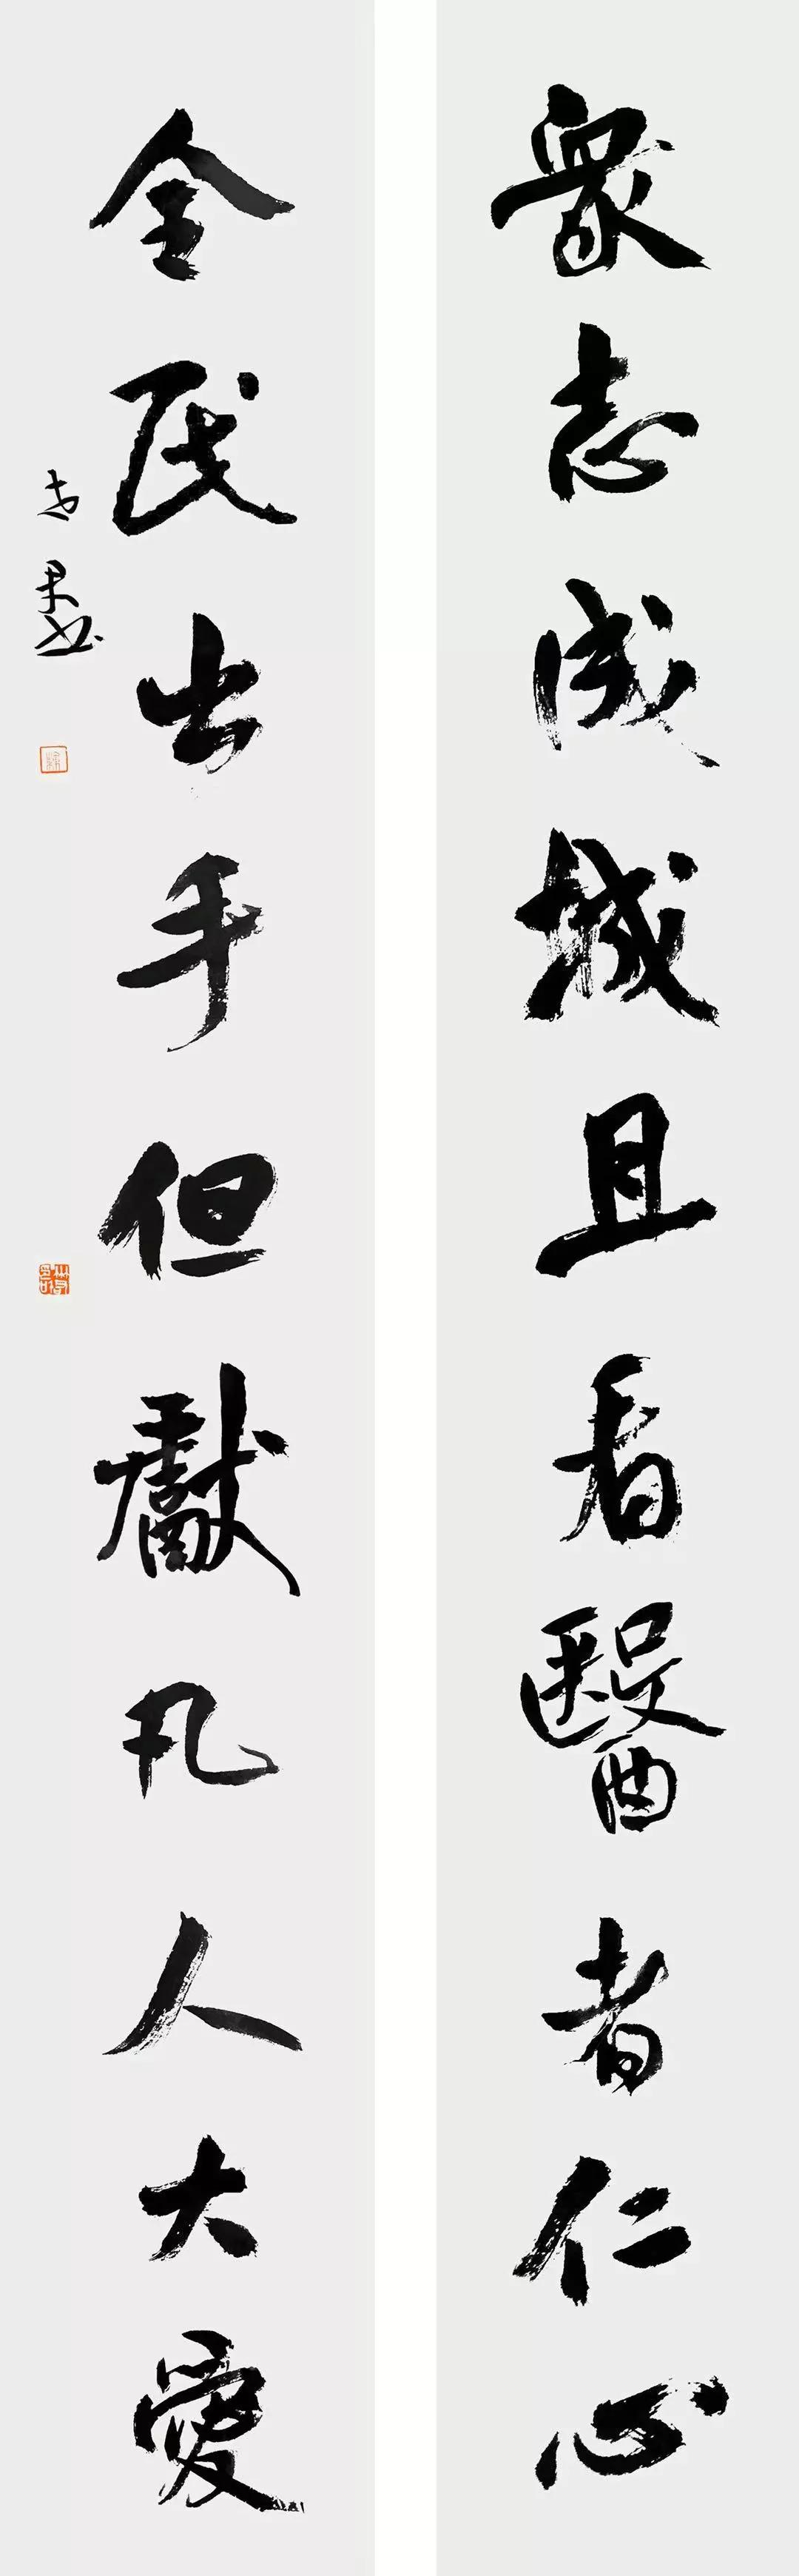 眾志成城且看醫者仁心
全民出手但獻凡人大愛